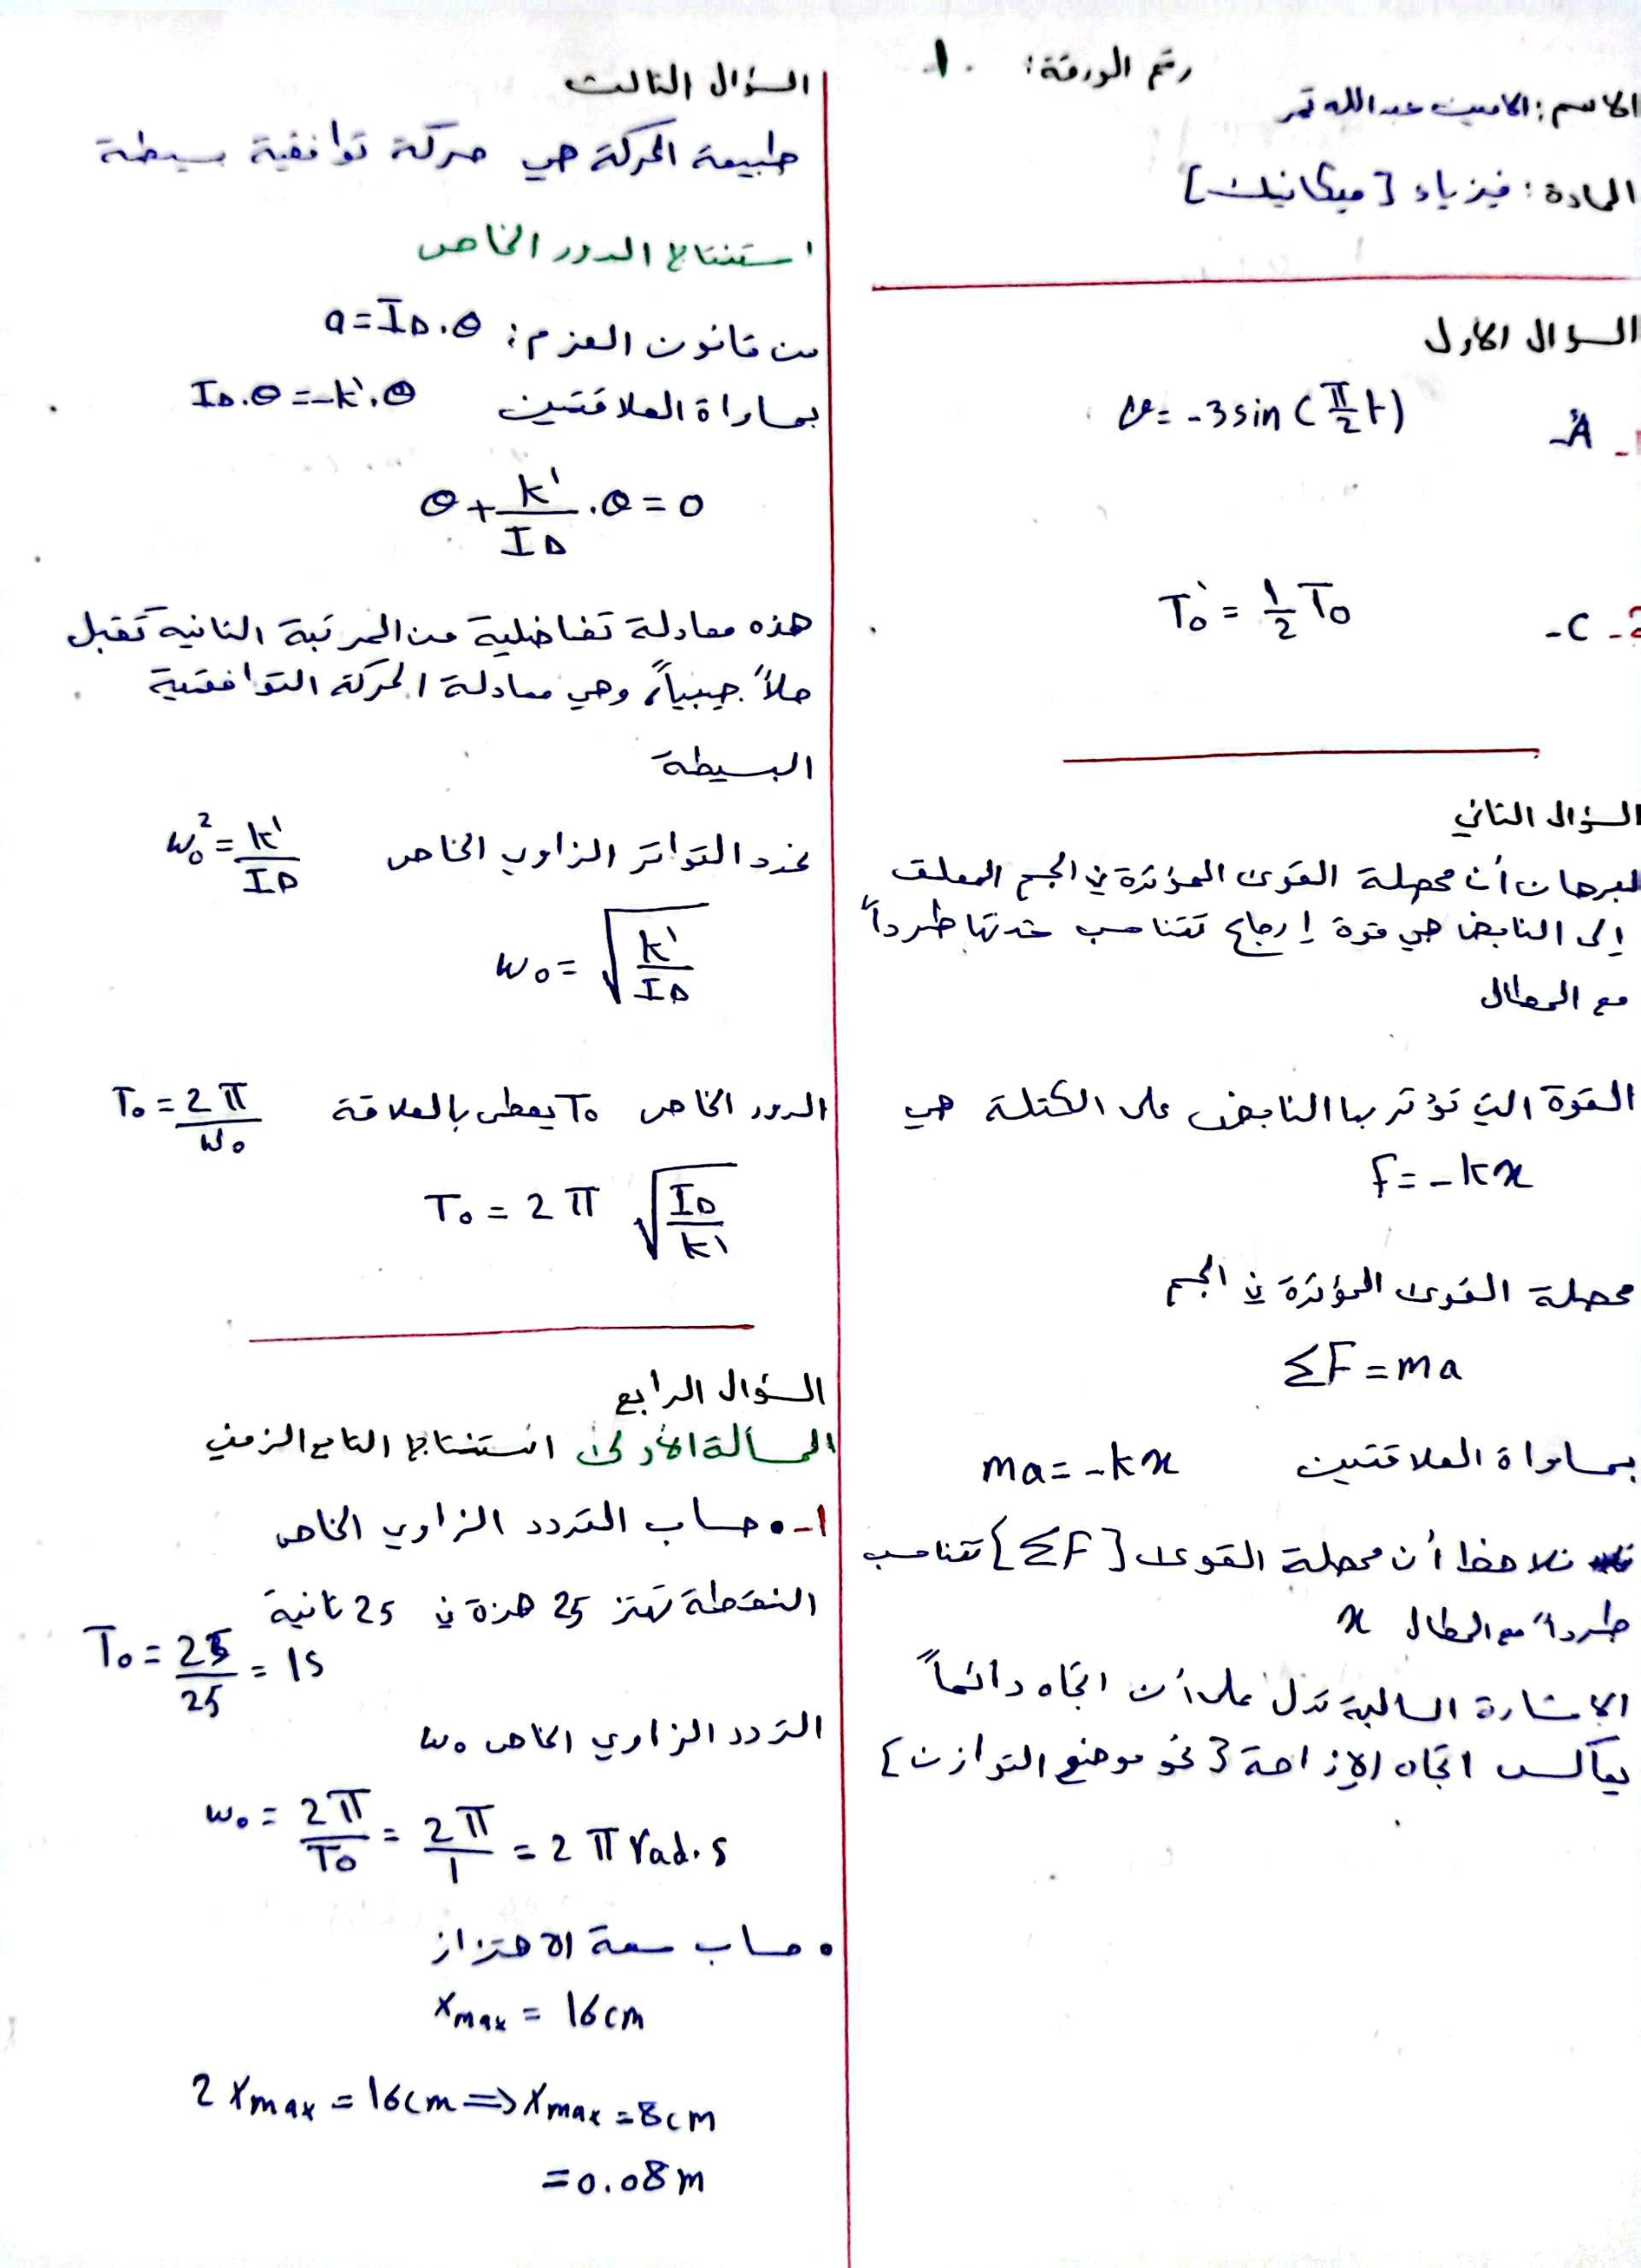 رقم الورقة: 1.
الاسم: الامين عبدالله تمر
المادة: فيزياء [ميكانيك]
السوال الاول
1- A- v = -3 sin (π/2 t)
2- C- T₀' = 1/2 T₀
السؤال الثاني
لبرهان أن محصلة القوى المؤثرة في الجسم المعلق
إلى النابض هي قوة إرجاع تتناسب شدتها طرداً
مع المطال
القوة التي تؤثر بها النابض على الكتلة هي
F = -kx
محصلة القوى المؤثرة في الجسم
ΣF = ma
بمساواة العلاقتين ma = -kx
نلاحظ أن محصلة القوى [ΣF] تتناسب
طرداً مع المطال x
الاشارة السالبة تدل على أن اتجاه دائماً
يعاكس اتجاه الإزاحة {نحو موضع التوازن}
السؤال الثالث
طبيعة الحركة هي حركة توافقية بسيطة
استنتاج الدور الخاص
من قانون العزم: a = I∆.θ
بمساواة العلاقتين I∆.θ = -k'.θ
θ + k'/I∆ .θ = 0
هذه معادلة تفاضلية من المرتبة الثانية تقبل
حلاً جيبياً، وهي معادلة الحركة التوافقية
البسيطة
نحدد التواتر الزاوي الخاص ω₀² = k'/I∆
ω₀ = √(k'/I∆)
الدور الخاص T₀ يعطى بالعلاقة T₀ = 2π/ω₀
T₀ = 2π √(I∆/k')
السؤال الرابع
المسألة الأولى استنتاج التابع الزمني
1- • حساب التردد الزاوي الخاص
النقطة تهتز 25 هزة في 25 ثانية
T₀ = 25/25 = 1s
التردد الزاوي الخاص ω₀
ω₀ = 2π/T₀ = 2π/1 = 2π rad.s
• حساب سعة الاهتزاز
xmax = 16cm
2 xmax = 16cm ⇒ xmax = 8cm
= 0.08m